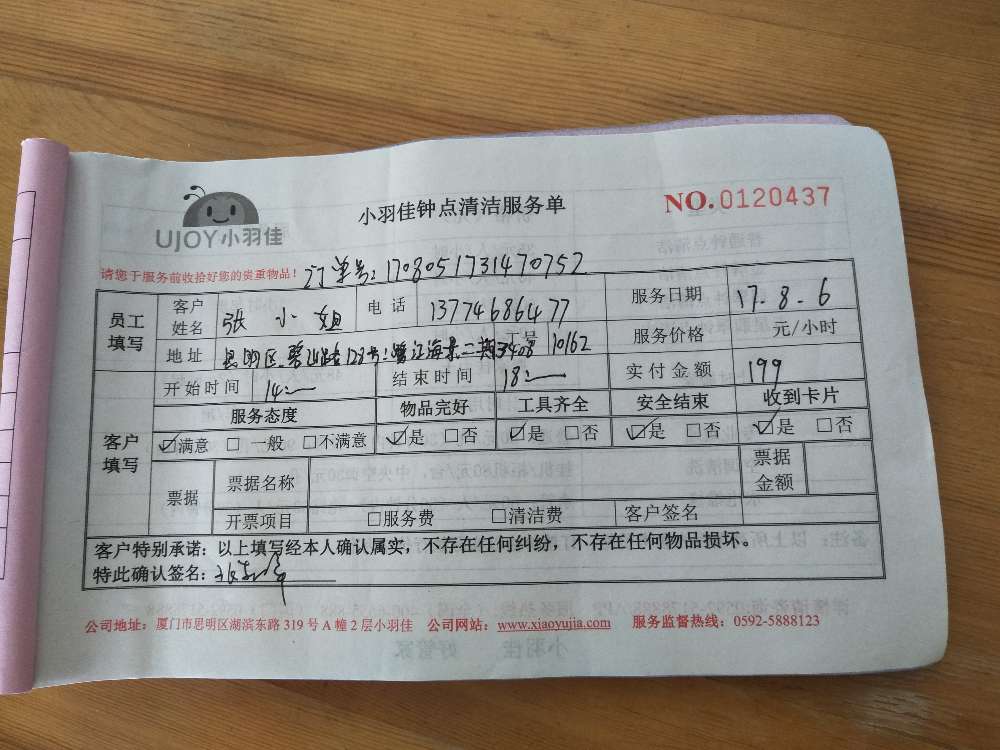 UJOY小羽佳
小羽佳钟点清洁服务单
NO.0120437
请您于服务前收拾好您的贵重物品!
订单号:1708051731470752
员工填写
客户姓名 张小姐 电话 13774686477 服务日期 17.8.6
地址 思明区 122号 海景二期3408 工号 10162 服务价格 元/小时
开始时间 14 结束时间 18 实付金额 199
客户填写
服务态度 物品完好 工具齐全 安全结束 收到卡片
☑满意 □一般 □不满意 ☑是 □否 ☑是 □否 ☑是 □否 ☑是 □否
票据 票据名称 票据金额
开票项目 □服务费 □清洁费 客户签名
客户特别承诺:以上填写经本人确认属实,不存在任何纠纷,不存在任何物品损坏。
特此确认签名:
公司地址:厦门市思明区湖滨东路 319 号 A 幢 2 层小羽佳 公司网站:www.xiaoyujia.com 服务监督热线:0592-5888123